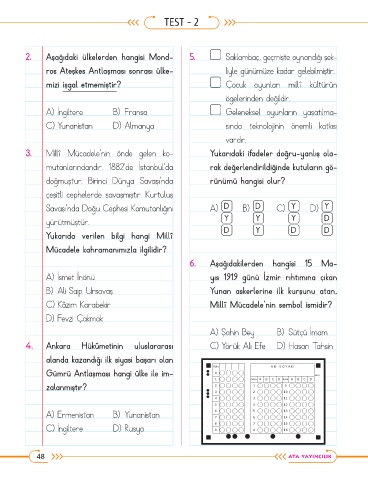 TEST - 2
2. Aşağıdaki ülkelerden hangisi Mond-
ros Ateşkes Antlaşması sonrası ülke-
mizi işgal etmemiştir?
A) İngiltere B) Fransa
C) Yunanistan D) Almanya
3. Millî Mücadele'nin önde gelen ko-
mutanlarındandır. 1882'de İstanbul'da
doğmuştur. Birinci Dünya Savaşı'nda
çeşitli cephelerde savaşmıştır. Kurtuluş
Savaşı'nda Doğu Cephesi Komutanlığını
yürütmüştür.
Yukarıda verilen bilgi hangi Millî
Mücadele kahramanımızla ilgilidir?
A) İsmet İnönü
B) Ali Saip Ursavaş
C) Kâzım Karabekir
D) Fevzi Çakmak
4. Ankara Hükûmetinin uluslararası
alanda kazandığı ilk siyasi başarı olan
Gümrü Antlaşması hangi ülke ile im-
zalanmıştır?
A) Ermenistan B) Yunanistan
C) İngiltere D) Rusya
5. Saklambaç, geçmişte oynandığı şek-
liyle günümüze kadar gelebilmiştir.
Çocuk oyunları millî kültürün
ögelerinden değildir.
Geleneksel oyunların yaşatılma-
sında teknolojinin önemli katkısı
vardır.
Yukarıdaki ifadeler doğru-yanlış ola-
rak değerlendirildiğinde kutuların gö-
rünümü hangisi olur?
A) D B) D C) Y D) Y
Y Y Y D
D Y D D
6. Aşağıdakilerden hangisi 15 Ma-
yıs 1919 günü İzmir rıhtımına çıkan
Yunan askerlerine ilk kurşunu atan,
Millî Mücadele'nin sembol ismidir?
A) Şahin Bey B) Sütçü İmam
C) Yörük Ali Efe D) Hasan Tahsin
AD SOYAD
48
ATA YAYINCILIK